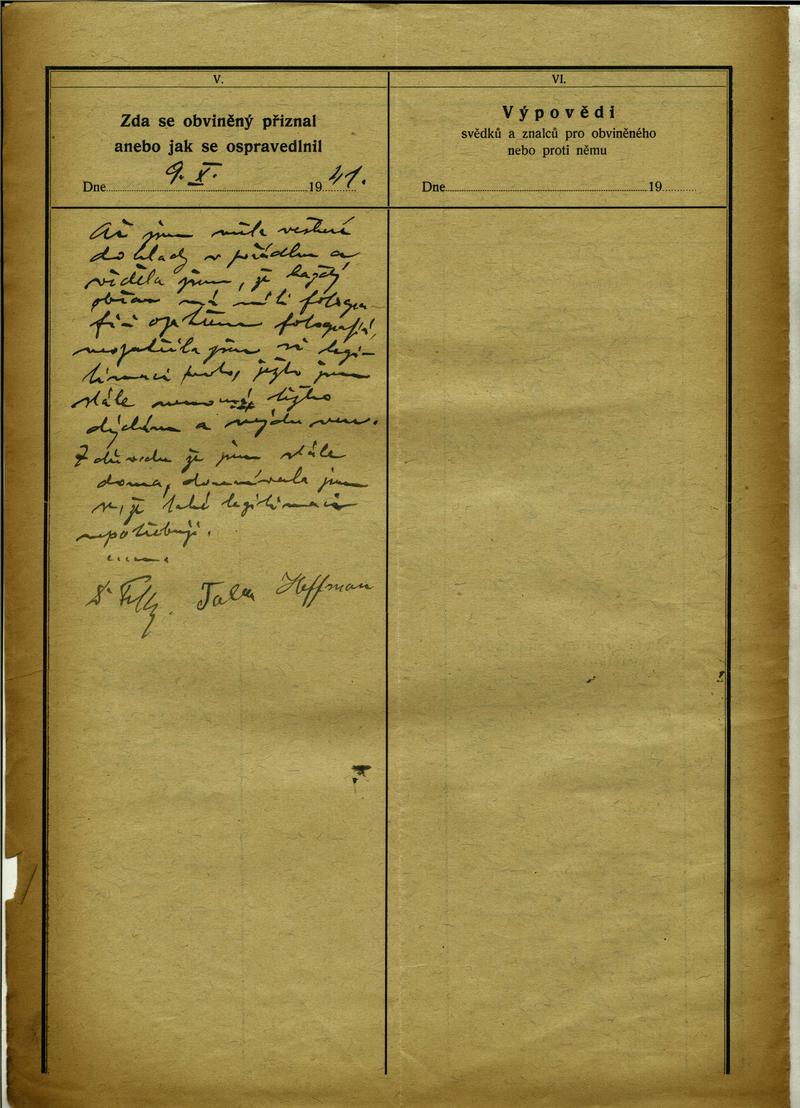 V.
Zda se obviněný přiznal
anebo jak se ospravedlnil
Dne 9. X. 1941.
Ač jsem měla veškeré
doklady v pořádku a
věděla jsem, že každý
občan má míti fotogra-
fií opatřenou
neopatřila jsem si legi-
timaci proto, ježto jsem
stále nemocná těžko
dýchám a nejdu ven.
Z důvodu že jsem stále
doma, domnívala jsem
se, že také legitimaci
nepotřebuji.
Hoffman
VI.
Výpovědi
svědků a znalců pro obviněného
nebo proti němu
Dne 19